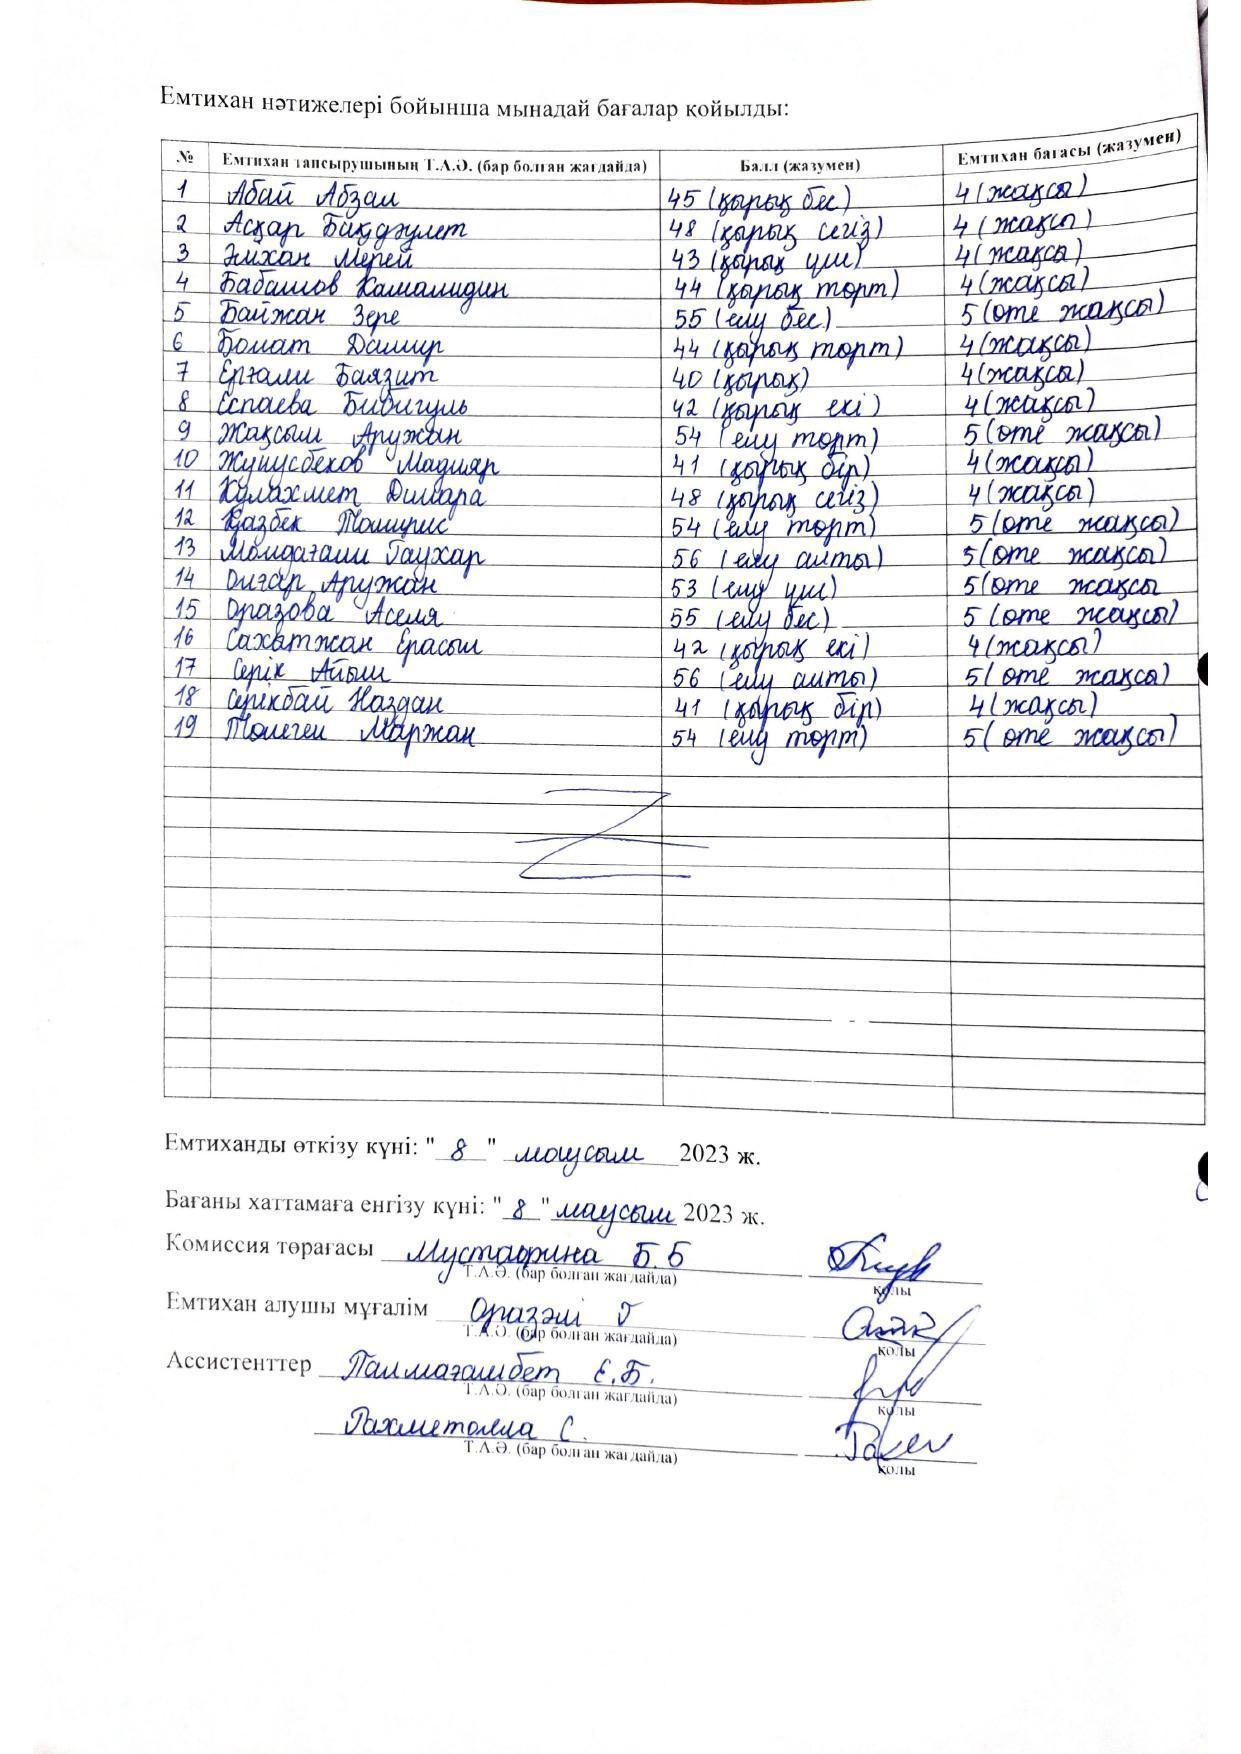 Емтихан нәтижелері бойынша мынадай бағалар қойылды:
№ Емтихан тапсырушының Т.А.Ә. (бар болған жағдайда) Балл (жазумен) Емтихан бағасы (жазумен)
1 Абай Абзал 45 (қырық бес) 4 (жақсы)
2 Асқар Бақдәулет 48 (қырық сегіз) 4 (жақсы)
3 Әлихан Мерей 43 (қырық үш) 4 (жақсы)
4 Бабашов Камалидин 44 (қырық төрт) 4 (жақсы)
5 Байжан Зере 55 (елу бес) 5 (өте жақсы)
6 Болат Дамир 44 (қырық төрт) 4 (жақсы)
7 Ерғали Баязит 40 (қырық) 4 (жақсы)
8 Еспаева Бибигуль 42 (қырық екі) 4 (жақсы)
9 Жақсым Аружан 54 (елу төрт) 5 (өте жақсы)
10 Жунусбеков Мадияр 41 (қырық бір) 4 (жақсы)
11 Құлахмет Дилара 48 (қырық сегіз) 4 (жақсы)
12 Қазбек Томирис 54 (елу төрт) 5 (өте жақсы)
13 Молдағали Гаухар 56 (елу алты) 5 (өте жақсы)
14 Олғар Аружан 53 (елу үш) 5 (өте жақсы
15 Оразова Аселя 55 (елу бес) 5 (өте жақсы)
16 Сахатжан Ерасыл 42 (қырық екі) 4 (жақсы)
17 Серік Айым 56 (елу алты) 5 (өте жақсы)
18 Серікбай Наздан 41 (қырық бір) 4 (жақсы)
19 Төлеген Маржан 54 (елу төрт) 5 (өте жақсы)
Емтиханды өткізу күні: "8" маусым 2023 ж.
Бағаны хаттамаға енгізу күні: "8" маусым 2023 ж.
Комиссия төрағасы Мустафина Б.Б
Т.А.Ә. (бар болған жағдайда) қолы
Емтихан алушы мұғалім Оразәлі Г
Т.А.Ә. (бар болған жағдайда) қолы
Ассистенттер Палмағамбет Е.Б.
Т.А.Ә. (бар болған жағдайда) қолы
Рахметолла С.
Т.А.Ә. (бар болған жағдайда) қолы